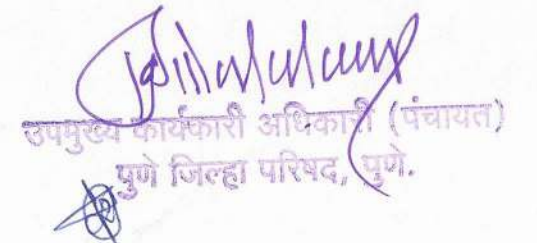 उपमुख्य कार्यकारी अधिकारी (पंचायत)
पुणे जिल्हा परिषद, पुणे.